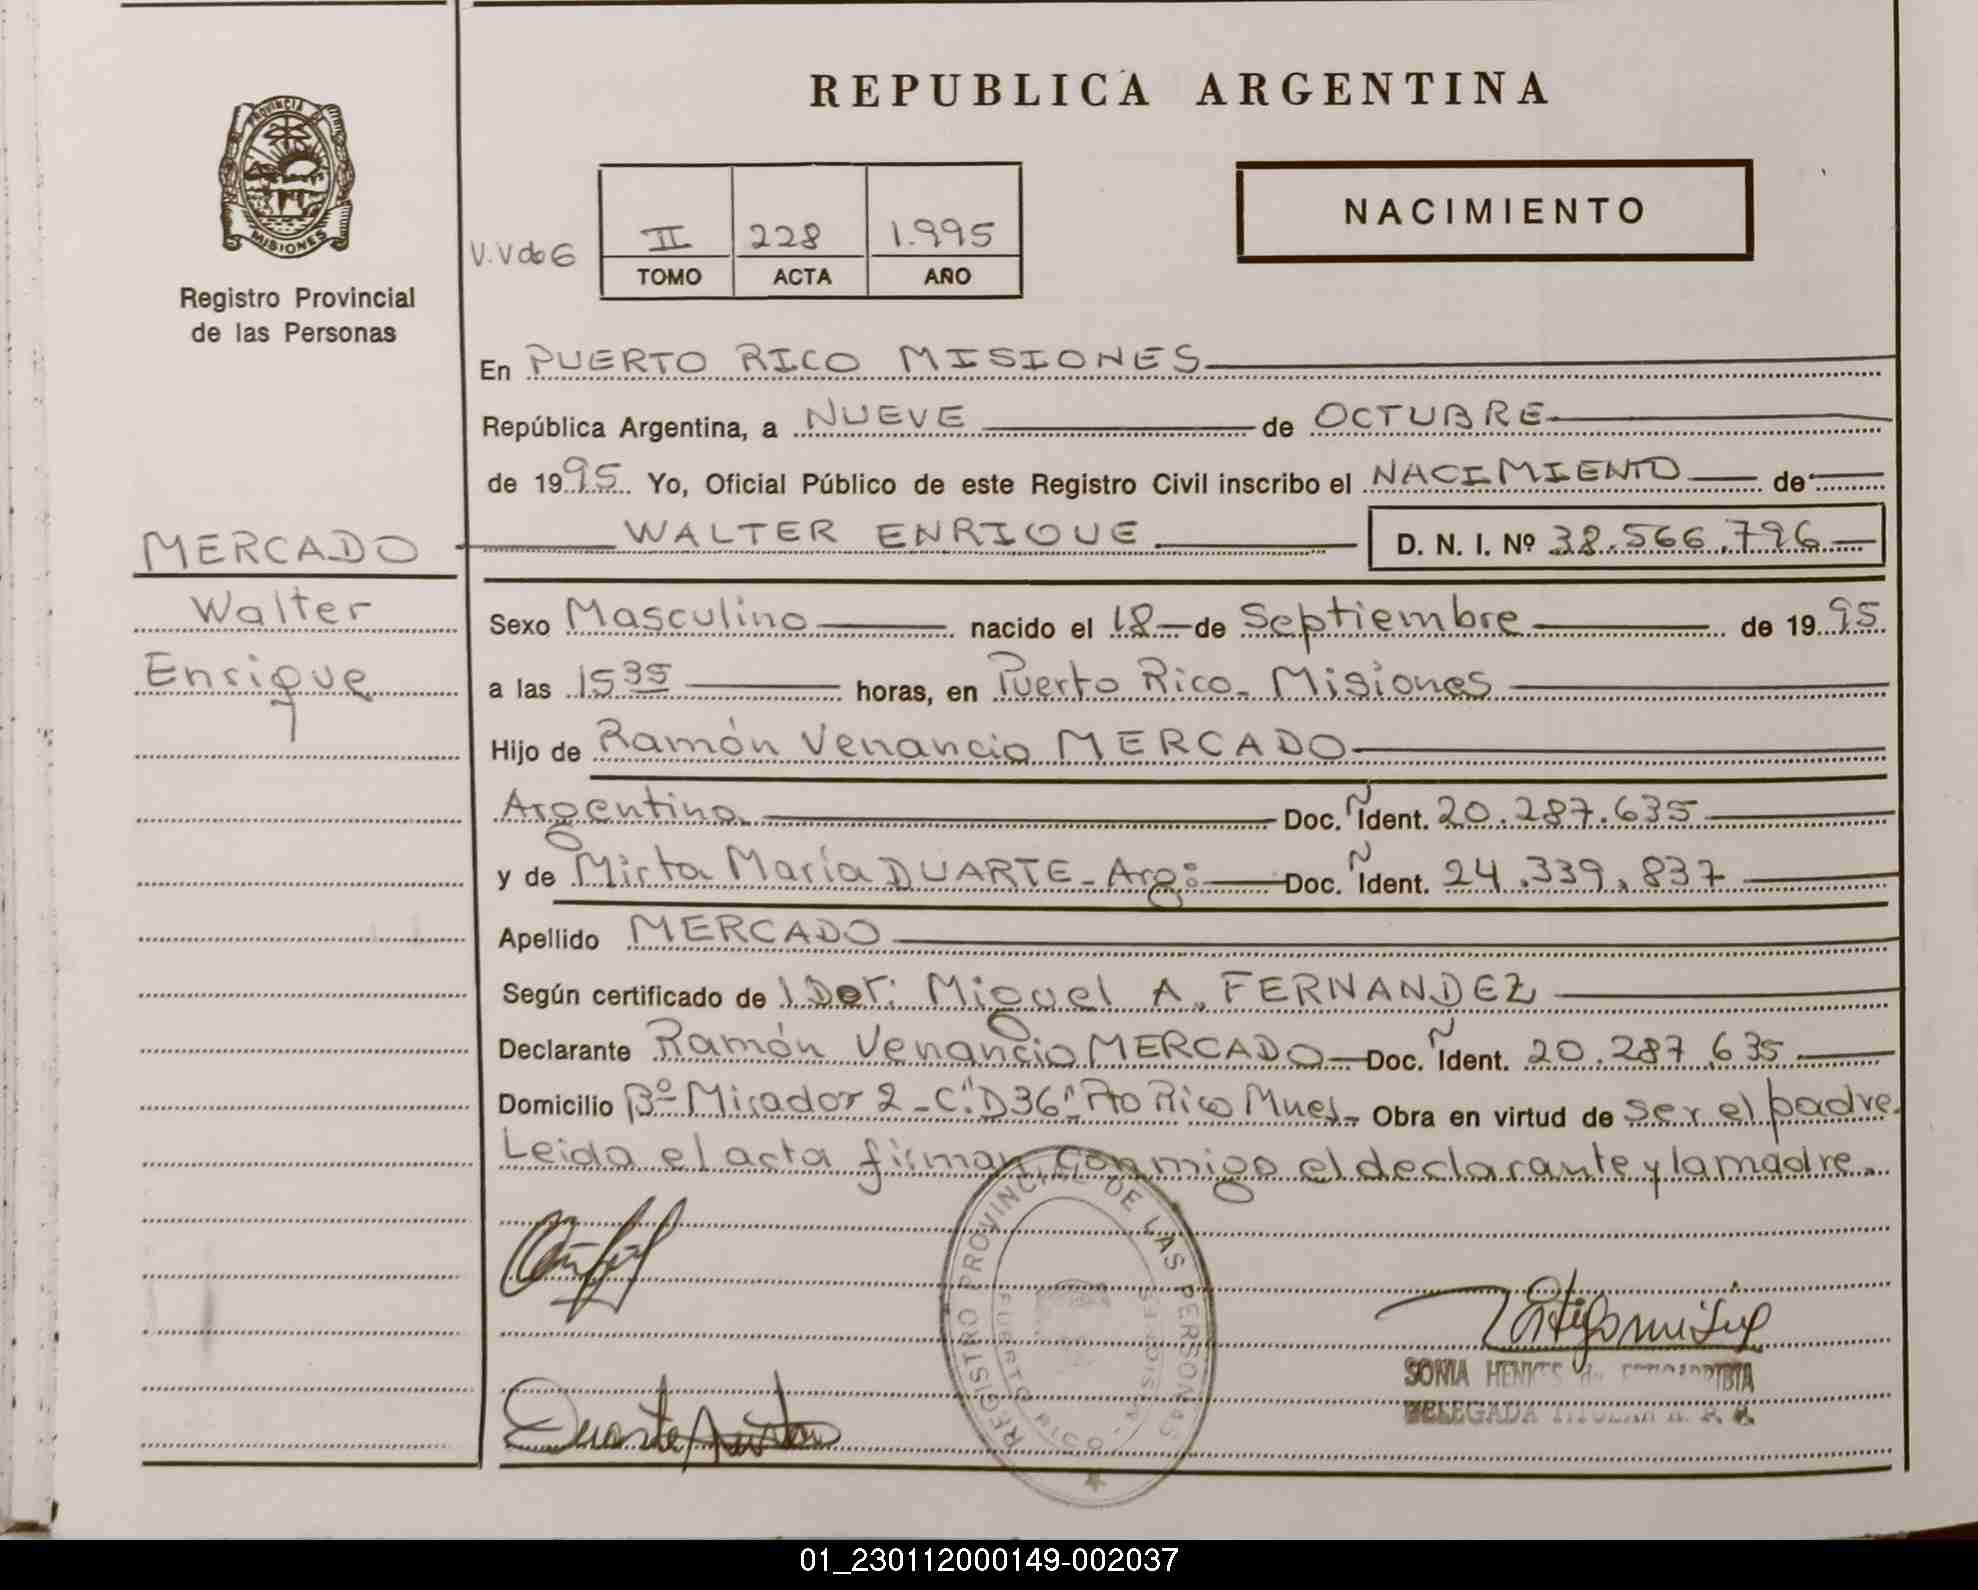 REPUBLICA ARGENTINA
PROVINCIA
MISIONES
Registro Provincial
de las Personas
V.Vdo6
II 228 1.995
TOMO ACTA AÑO
NACIMIENTO
En PUERTO RICO MISIONES
República Argentina, a NUEVE de OCTUBRE
de 1995 Yo, Oficial Público de este Registro Civil inscribo el NACIMIENTO de
WALTER ENRIQUE D. N. I. Nº 38.566.796
MERCADO
Walter
Enrique
Sexo Masculino nacido el 18 de Septiembre de 1995
a las 15 35 horas, en Puerto Rico. Misiones
Hijo de Ramón Venancio MERCADO
Argentino Doc. Ident. 20.287.635
y de Mirta María DUARTE - Arg: Doc. Ident. 24.339.837
Apellido MERCADO
Según certificado de Miguel A. FERNANDEZ
Declarante Ramón Venancio MERCADO Doc. Ident. 20.287.635
Domicilio Bº Mirador 2 - C."D36" Pto Rico Mnes- Obra en virtud de ser el padre.
Leida el acta firman conmigo el declarante y la madre.
REGISTRO PROVINCIAL DE LAS PERSONAS
PUERTO RICO
MISIONES
Duarte Mirta
SONIA HENKES de
DELEGADA TITULAR R. P. P.
01_230112000149-002037